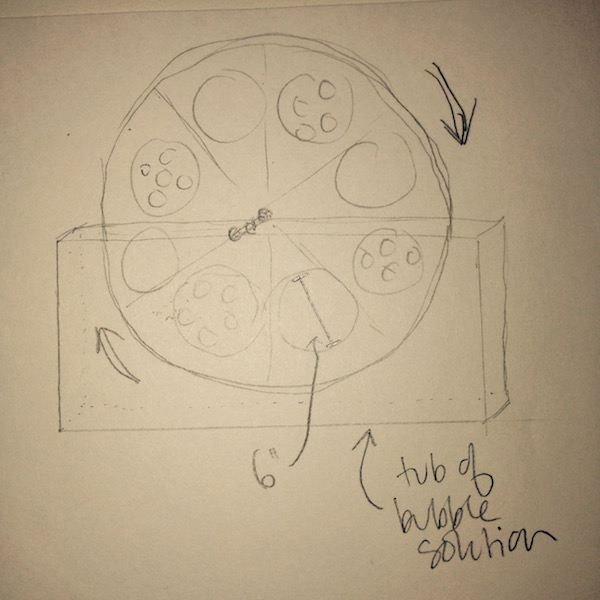 6"
tub of
bubble
solution